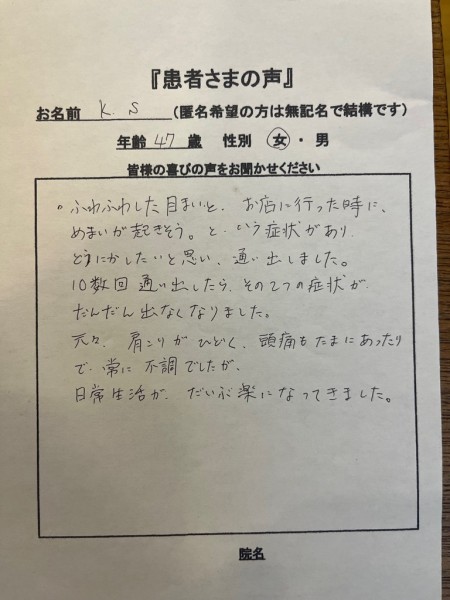 『患者さまの声』
お名前 K. S (匿名希望の方は無記名で結構です)
年齢 47 歳 性別 女・男
皆様の喜びの声をお聞かせください
。ふわふわした目まいと、お店に行った時に、
めまいが起きそう。と いう症状があり
どうにかしたいと思い、通い出しました。
10数回 通い出したら、その2つの症状が
だんだん出なくなりました。
元々、肩こりが ひどく、頭痛もたまにあったり
で、常に 不調でしたが、
日常生活が、だいぶ楽になってきました。
院名